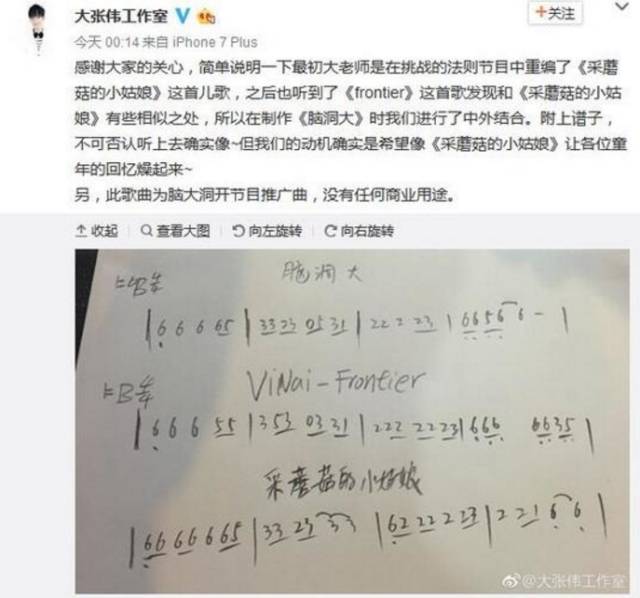 大张伟工作室
+关注
今天 00:14 来自 iPhone 7 Plus
感谢大家的关心，简单说明一下最初大老师是在挑战的法则节目中重编了《采蘑
菇的小姑娘》这首儿歌，之后也听到了《frontier》这首歌发现和《采蘑菇的小姑
娘》有些相似之处，所以在制作《脑洞大》时我们进行了中外结合。附上谱子，
不可否认听上去确实像~但我们的动机确实是希望像《采蘑菇的小姑娘》让各位童
年的回忆燥起来~
另，此歌曲为脑大洞开节目推广曲，没有任何商业用途。
收起 查看大图 向左旋转 向右旋转
脑洞大
| 6 6 6 65 | 33 23 05 31 | 22 2 23 | 6656 6 - |
ViNai-Frontier
| 6 6 6 55 | 353 03 31 | 222 22 23 | 666 6635 |
采蘑菇的小姑娘
| 66 66 6 65 | 33 23 33 | 62 22 2 23 | 2 21 6 6 |
@大张伟工作室